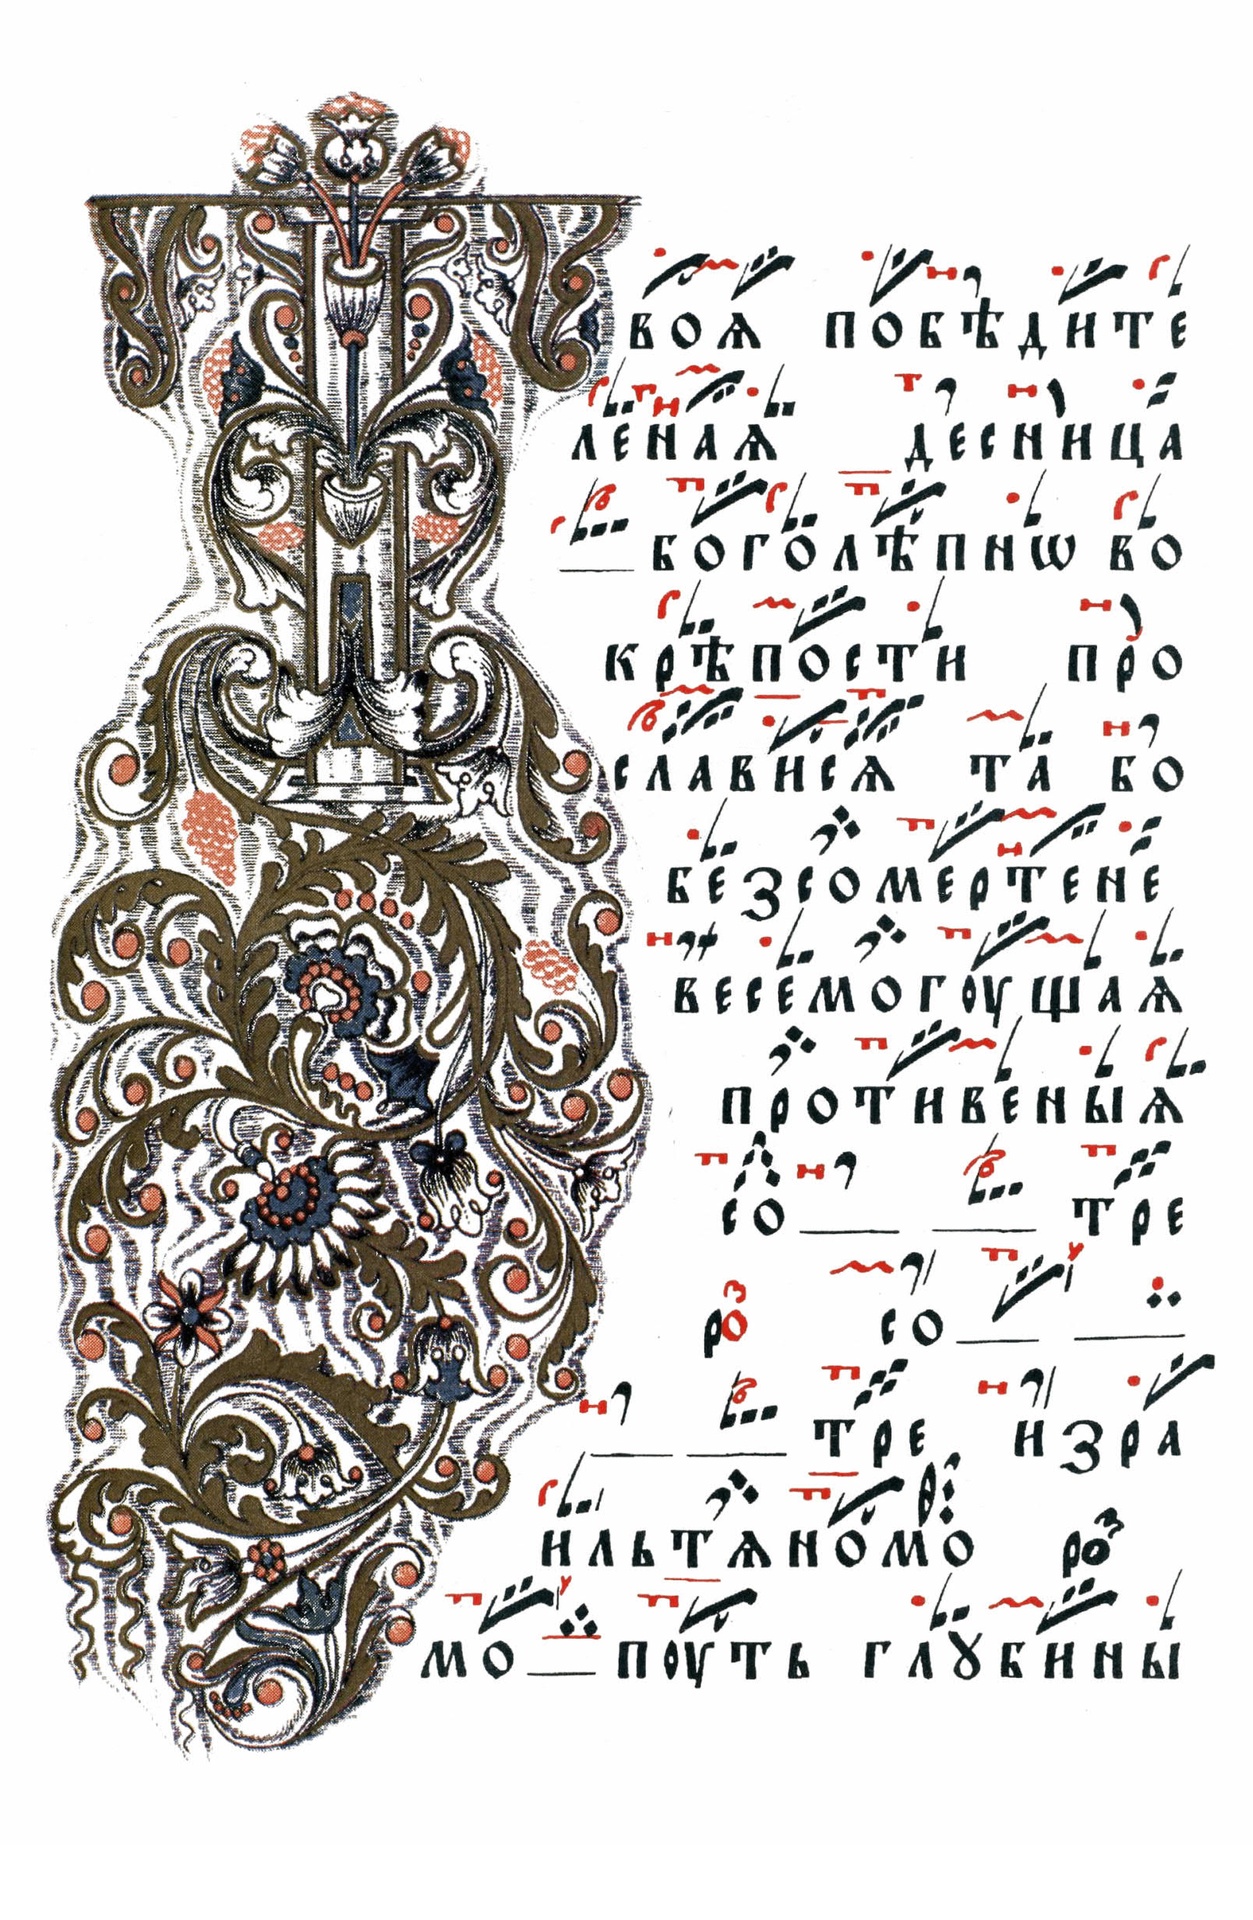 воѧ побѣдите
ленаѧ десница
боголѣпнѡ во
крѣпости про
слависѧ та бо
безсомертене
весемогꙋщаѧ
противеныѧ
со тре
роз со
тре изра
ильтѧномо роз
мо поуть глꙋбины